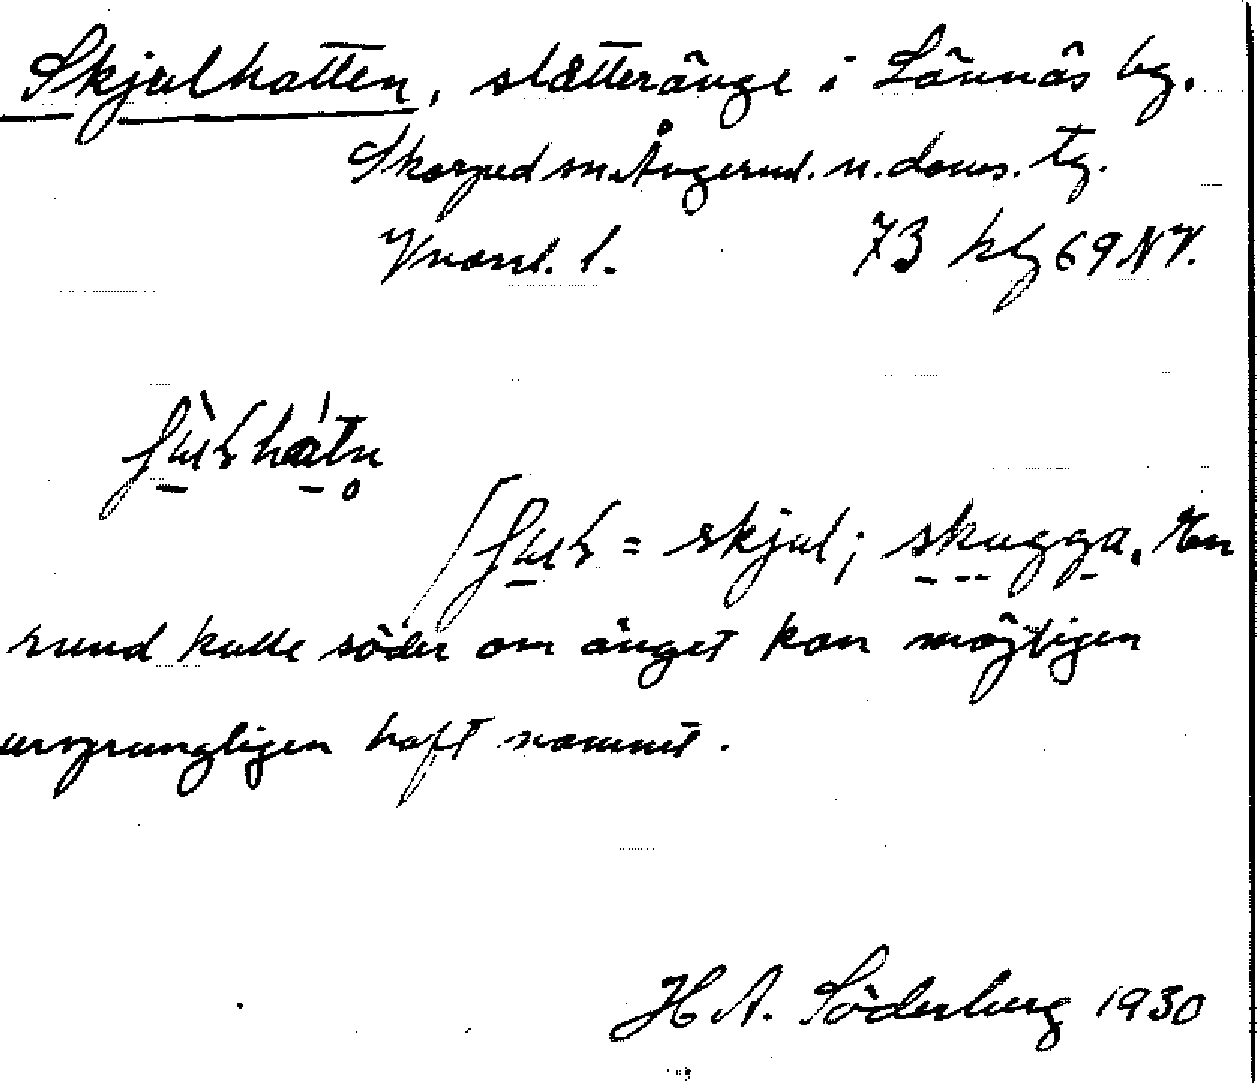 Skjulhatten, slåtteränge i Lännäs by.
Skorped sn. Ångerml. n. doms. tg.
Vnorrl. l. 73 kbl 69 NV.
= skjul; skugga. En
rund kulle söder om änget kan möjligen
ursprungligen haft namnet.
H. A. Söderberg 1930